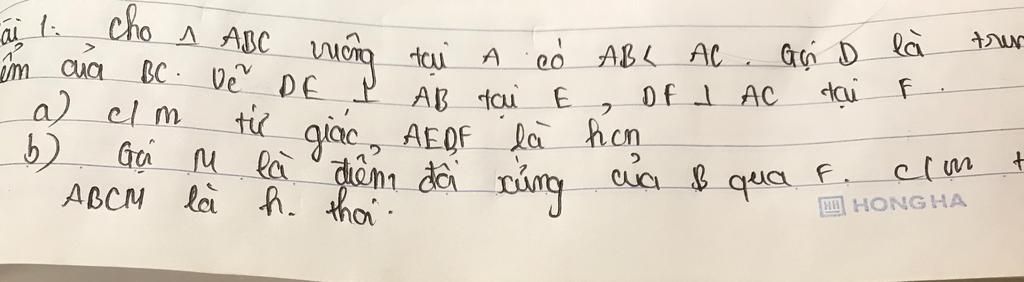 ài 1: Cho △ ABC vuông tại A có AB < AC. Gọi D là trun
ểm của BC. Vẽ DE ⊥ AB tại E, DF ⊥ AC tại F.
a) c/m tứ giác, AEDF là hcn
b) Gọi M là điểm đối xứng của B qua F. c/m t
ABCM là h. thoi.
HONG HA